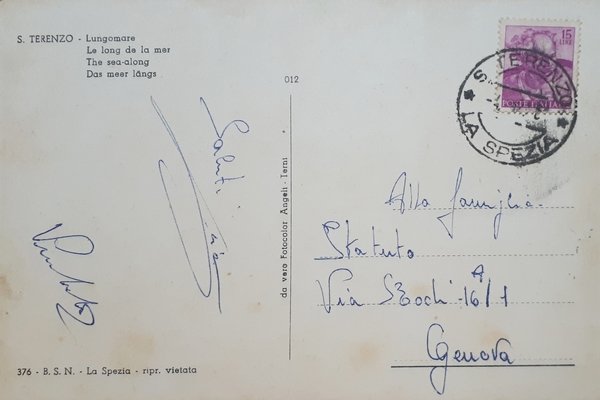 S. TERENZO - Lungomare
Le long de la mer
The sea-along
Das meer längs
012
15
LIRE
POSTE ITALIANE
S. TERENZO
* LA SPEZIA *
Saluti
Alla famiglia
Statuto
Via
A
16/1
Genova
da vera Fotocolor Angeli - Terni
376 - B. S. N. - La Spezia - ripr. vietata